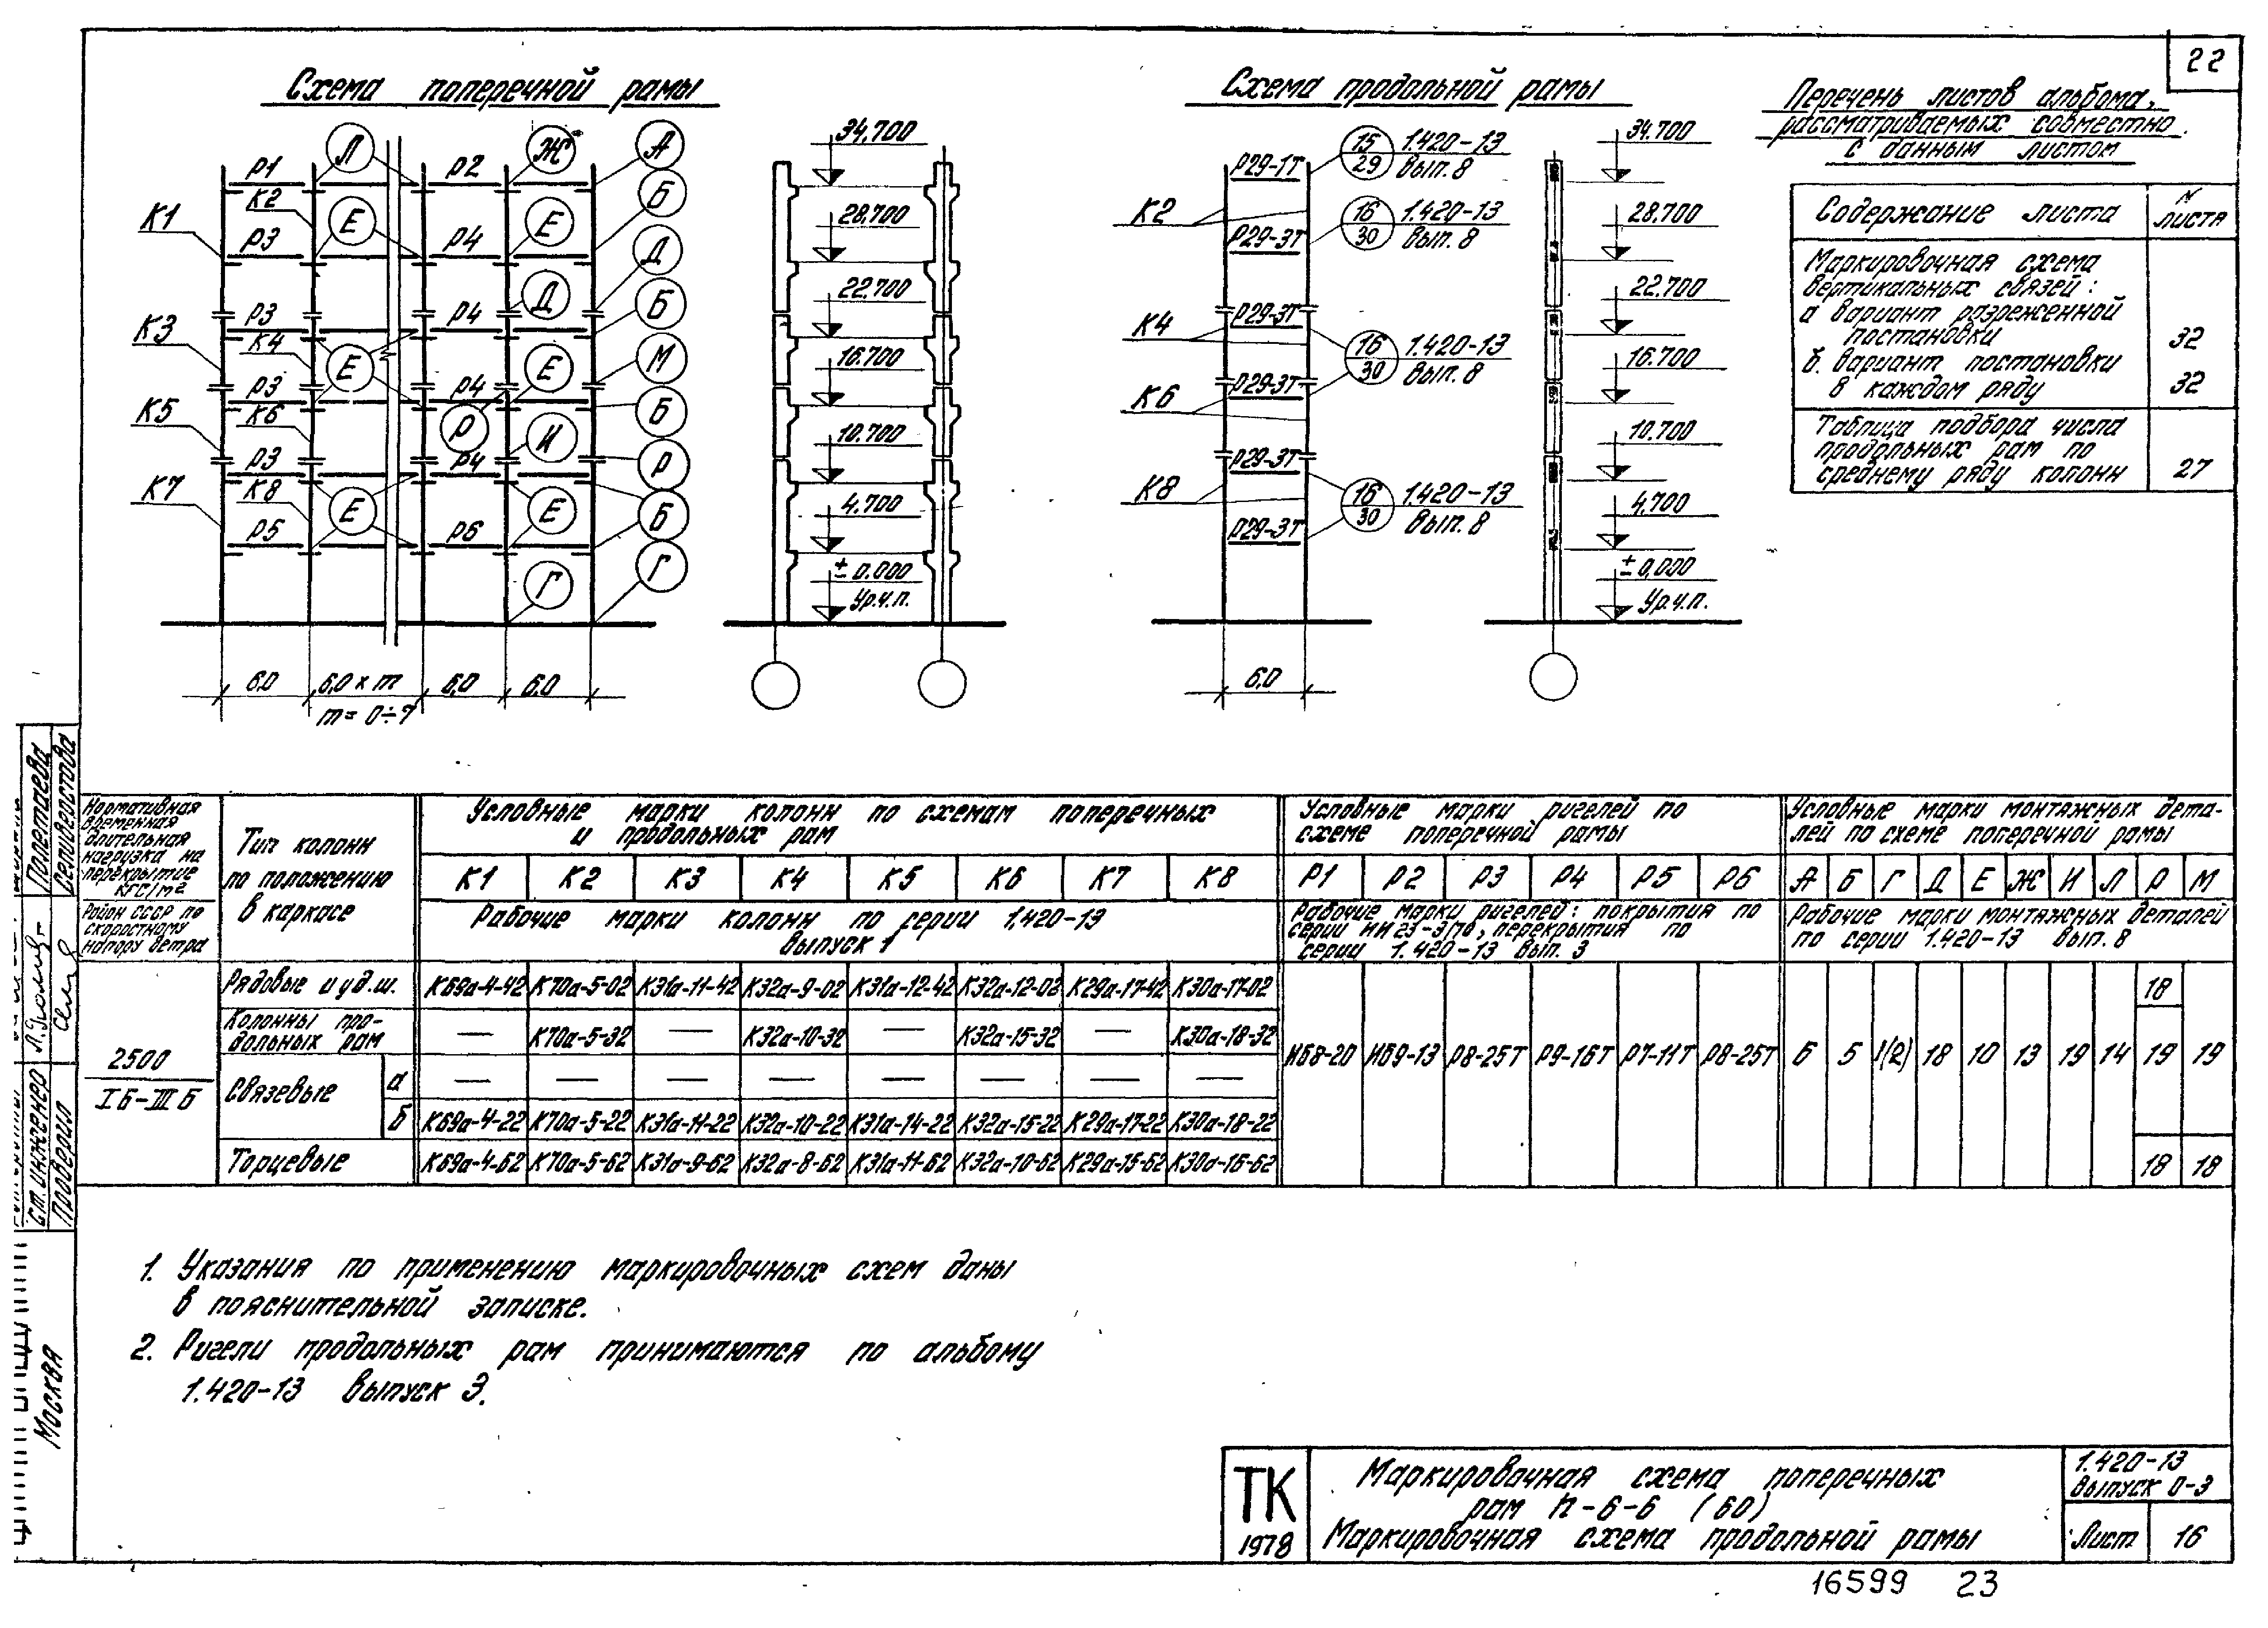 22
Схема поперечной рамы
Схема продольной рамы
Перечень листов альбома,
рассматриваемых совместно
с данным листом
Содержание листа
N листа
Маркировочная схема
вертикальных связей:
а вариант разреженной
постановки 32
б. вариант постановки
в каждом ряду 32
Таблица подбора числа
продольных рам по
среднему ряду колонн 27
Р1 Л Р2 Ж А
К1 К2 Е Е Б
Р3 Р4 Д
Д
Р3 Р4 Б
К3 К4 Е Е М
Р3 Р4 Б
К5 К6 Р И Р
Р3 Р4
К7 К8 Е Е Б
Р5 Р6
Г Г
6,0 6,0 х m 6,0 6,0
m = 0÷7
34,700
28,700
22,700
16.700
10.700
4,700
± 0.000
Ур.ч.п.
К2
К4
К6
К8
Р29-1Т
Р29-3Т
Р29-3Т
Р29-3Т
Р29-3Т
Р29-3Т
15 1.420-13
29 вып. 8
16 1.420-13
30 вып. 8
16 1.420-13
30 вып. 8
16 1.420-13
30 вып. 8
6,0
34.700
28,700
22,700
16.700
10.700
4,700
± 0,000
Ур.ч.п.
Нормативная
временная
длительная
нагрузка на
перекрытие
кгс/м2
Район СССР по
скоростному
напору ветра
Тип колонн
по положению
в каркасе
Условные марки колонн по схемам поперечных
и продольных рам
К1 К2 К3 К4 К5 К6 К7 К8
Рабочие марки колонн по серии 1,420-13
выпуск 1
Условные марки ригелей по
схеме поперечной рамы
Р1 Р2 Р3 Р4 Р5 Р6
Рабочие марки ригелей: покрытия по
серии ИИ23-3/70, перекрытия по
серии 1.420-13 вып. 3
Условные марки монтажных дета-
лей по схеме поперечной рамы
А Б Г Д Е Ж И Л Р М
Рабочие марки монтажных деталей
по серии 1.420-13 вып. 8
2500
IБ-IIIБ
Рядовые и у д.ш. К69а-4-42 К70а-5-02 К31а-11-42 К32а-9-02 К31а-12-42 К32а-12-02 К29а-17-42 К30а-17-02
Колонны про-
дольных рам — К70а-5-32 — К32а-10-32 — К32а-15-32 — К30а-18-32
Связевые
а — — — — — — — —
б К69а-4-22 К70а-5-22 К31а-11-22 К32а-10-22 К31а-14-22 К32а-15-22 К29а-17-22 К30а-18-22
Торцевые К69а-4-62 К70а-5-62 К31а-9-62 К32а-8-62 К31а-11-62 К32а-10-62 К29а-15-62 К30а-16-62
ИБ8-20 ИБ9-13 Р8-25Т Р9-16Т Р7-11Т Р8-25Т
6 5 1(2) 18 10 13 19 14 19 19
18
18 18
1. Указания по применению маркировочных схем даны
в пояснительной записке.
2. Ригели продольных рам принимаются по альбому
1.420-13 выпуск 3.
Ст. инженер
Проверил
Полетаева
Селиверстова
Москва
ТК
1978
Маркировочная схема поперечных
рам п-6-6 (60)
Маркировочная схема продольной рамы
1.420-13
Выпуск 0-3
Лист 16
16599 23